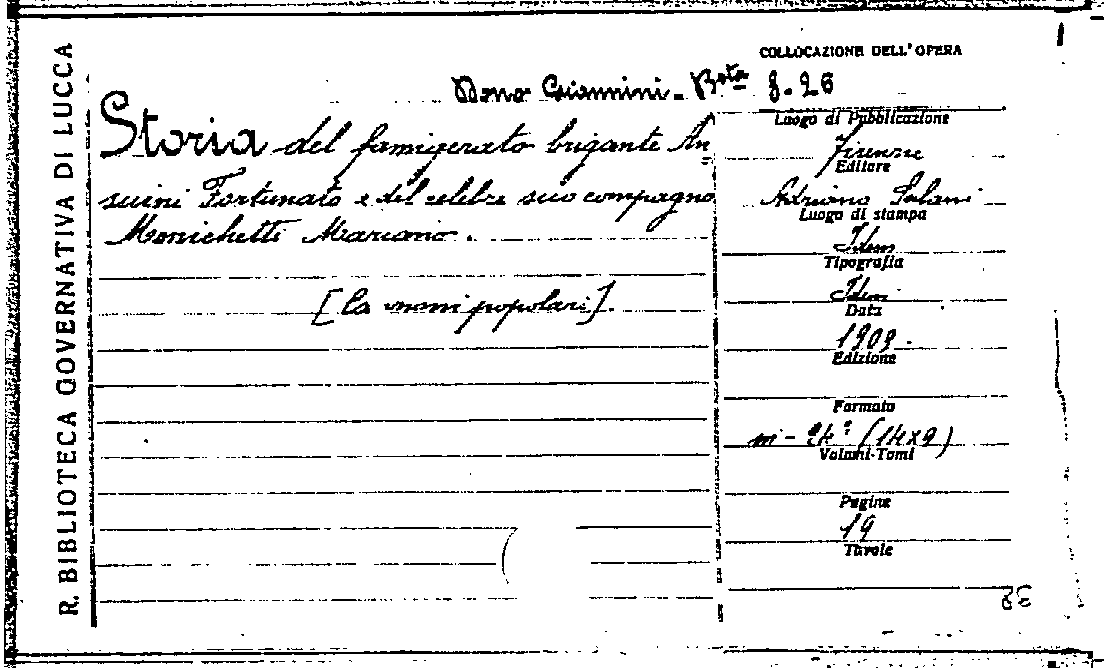 R. BIBLIOTECA GOVERNATIVA DI LUCCA
COLLOCAZIONE DELL'OPERA
Dono Giannini - Bsta 8.26
Storia del famigerato brigante An
suini Fortunato e del celebre suo compagno
Menichetti Mariano.
[Canzoni popolari].
Luogo di Pubblicazione
Firenze
Editore
Adriano Salani
Luogo di stampa
Idem
Tipografia
Idem
Data
1909.
Edizione
Formato
in-24° (14x9)
Volumi-Tomi
Pagine
19
Tavole